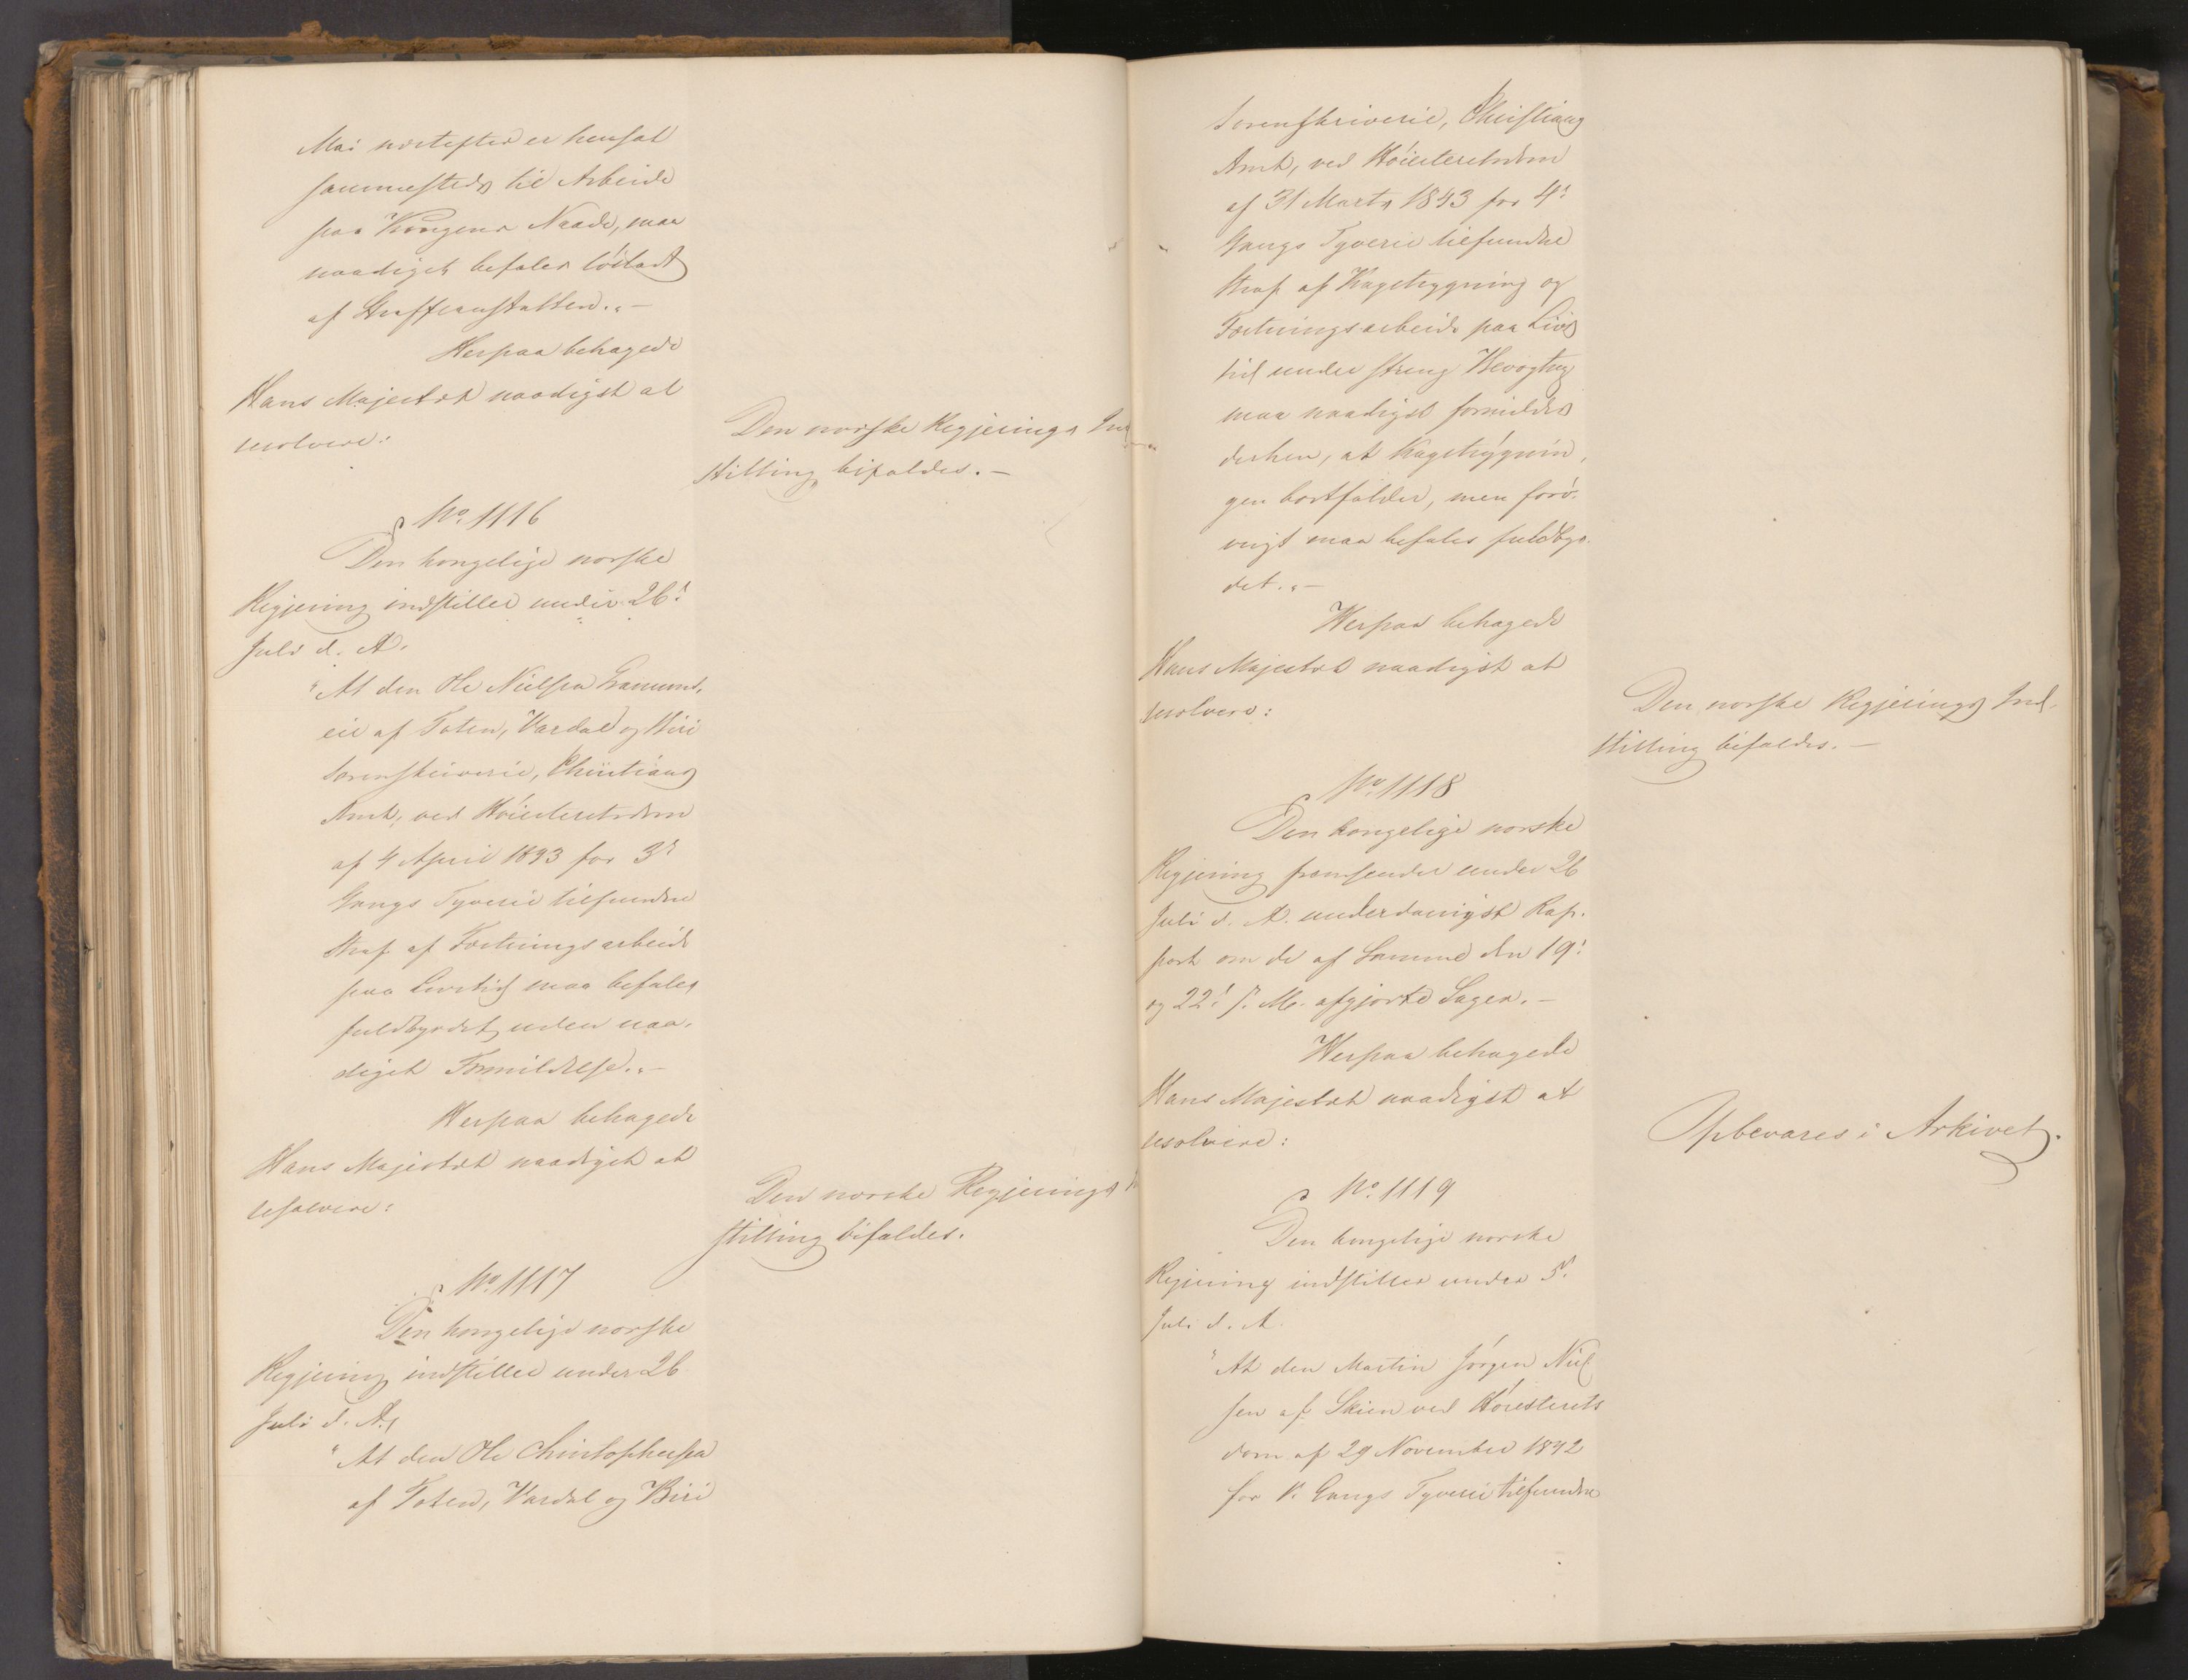 Mai næstefter er hensat
sammesteds til Arbeide
paa Kongens Naade, maa
naadigst befales løsladt
af Straffeanstalten."-
Herpaa behagede
Hans Majestæt naadigst at
resolvere:
Den norske Regjerings Ind
stilling bifaldes.-
No. 1116
Den kongelige norske
Regjering indstiller under 26.
Juli d. A.
"At den Ole Nielsen
eie af Toten, Vardal og Biri
Sorenskriverie, Christians
Amt, ved Høiesteretsdom
af 4 April 1843 for 3.
Gangs Tyverie tilfundne
Straf af Fæstningsarbeide
paa Livstid maa befales
fuldbyrdet uden naa-
digst Formildelse."-
Herpaa behagede
Hans Majestæt naadigst at
resolvere:
Den norske Regjerings In
stilling bifaldes.
No. 1117
Den kongelige norske
Regjering indstiller under 26
Juli d. A.,
"At den Ole Christophersen
af Toten, Vardal og Biri
Sorenskriverie, Christians
Amt, ved Høiesteretsdom
af 31 Marts 1843 for 4.
Gangs Tyverie tilfundne
Straf af Kagstrygning og
Fæstningsarbeide paa Livs
tid under streng Bevogtng
maa naadigst formildes
derhen, at Kagstrygnin,
gen bortfalder, men forø-
vrigt maa befales fuldbyr-
det."-
Herpaa behagede
Hans Majestæt naadigst at
resolvere:
Den norske Regjerings Ind-
stilling bifaldes.-
No. 1118
Den kongelige norske
Regjering fremsender under 26
Juli d. A. underdanigst Rap-
port om de af Samme den 19.
og 22. s. M. afgjorte Sager.-
Herpaa behagede
Hans Majestæt naadigst at
resolvere:
Opbevares i Arkivet.
No. 1119
Den kongelige norske
Regjering indstiller under 5.
Juli d. A.
"At den Martin Jørgen Niel
sen af Skien ved Høiesterets
dom af 29 November 1842
for Gangs Tyverie tilfundne